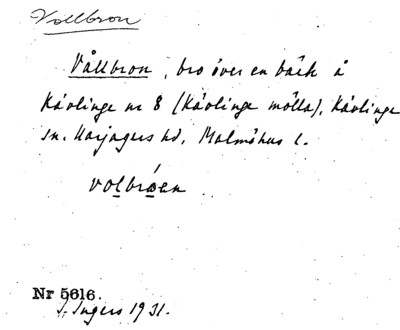 Vollbron
Vållbron, bro över en bäck å
Kävlinge nr 8 (Kävlinge mölla), Kävlinge
sn. Harjagers hd, Malmöhus l.
volbrøen
Nr 5616.
I. Ingers 1931.